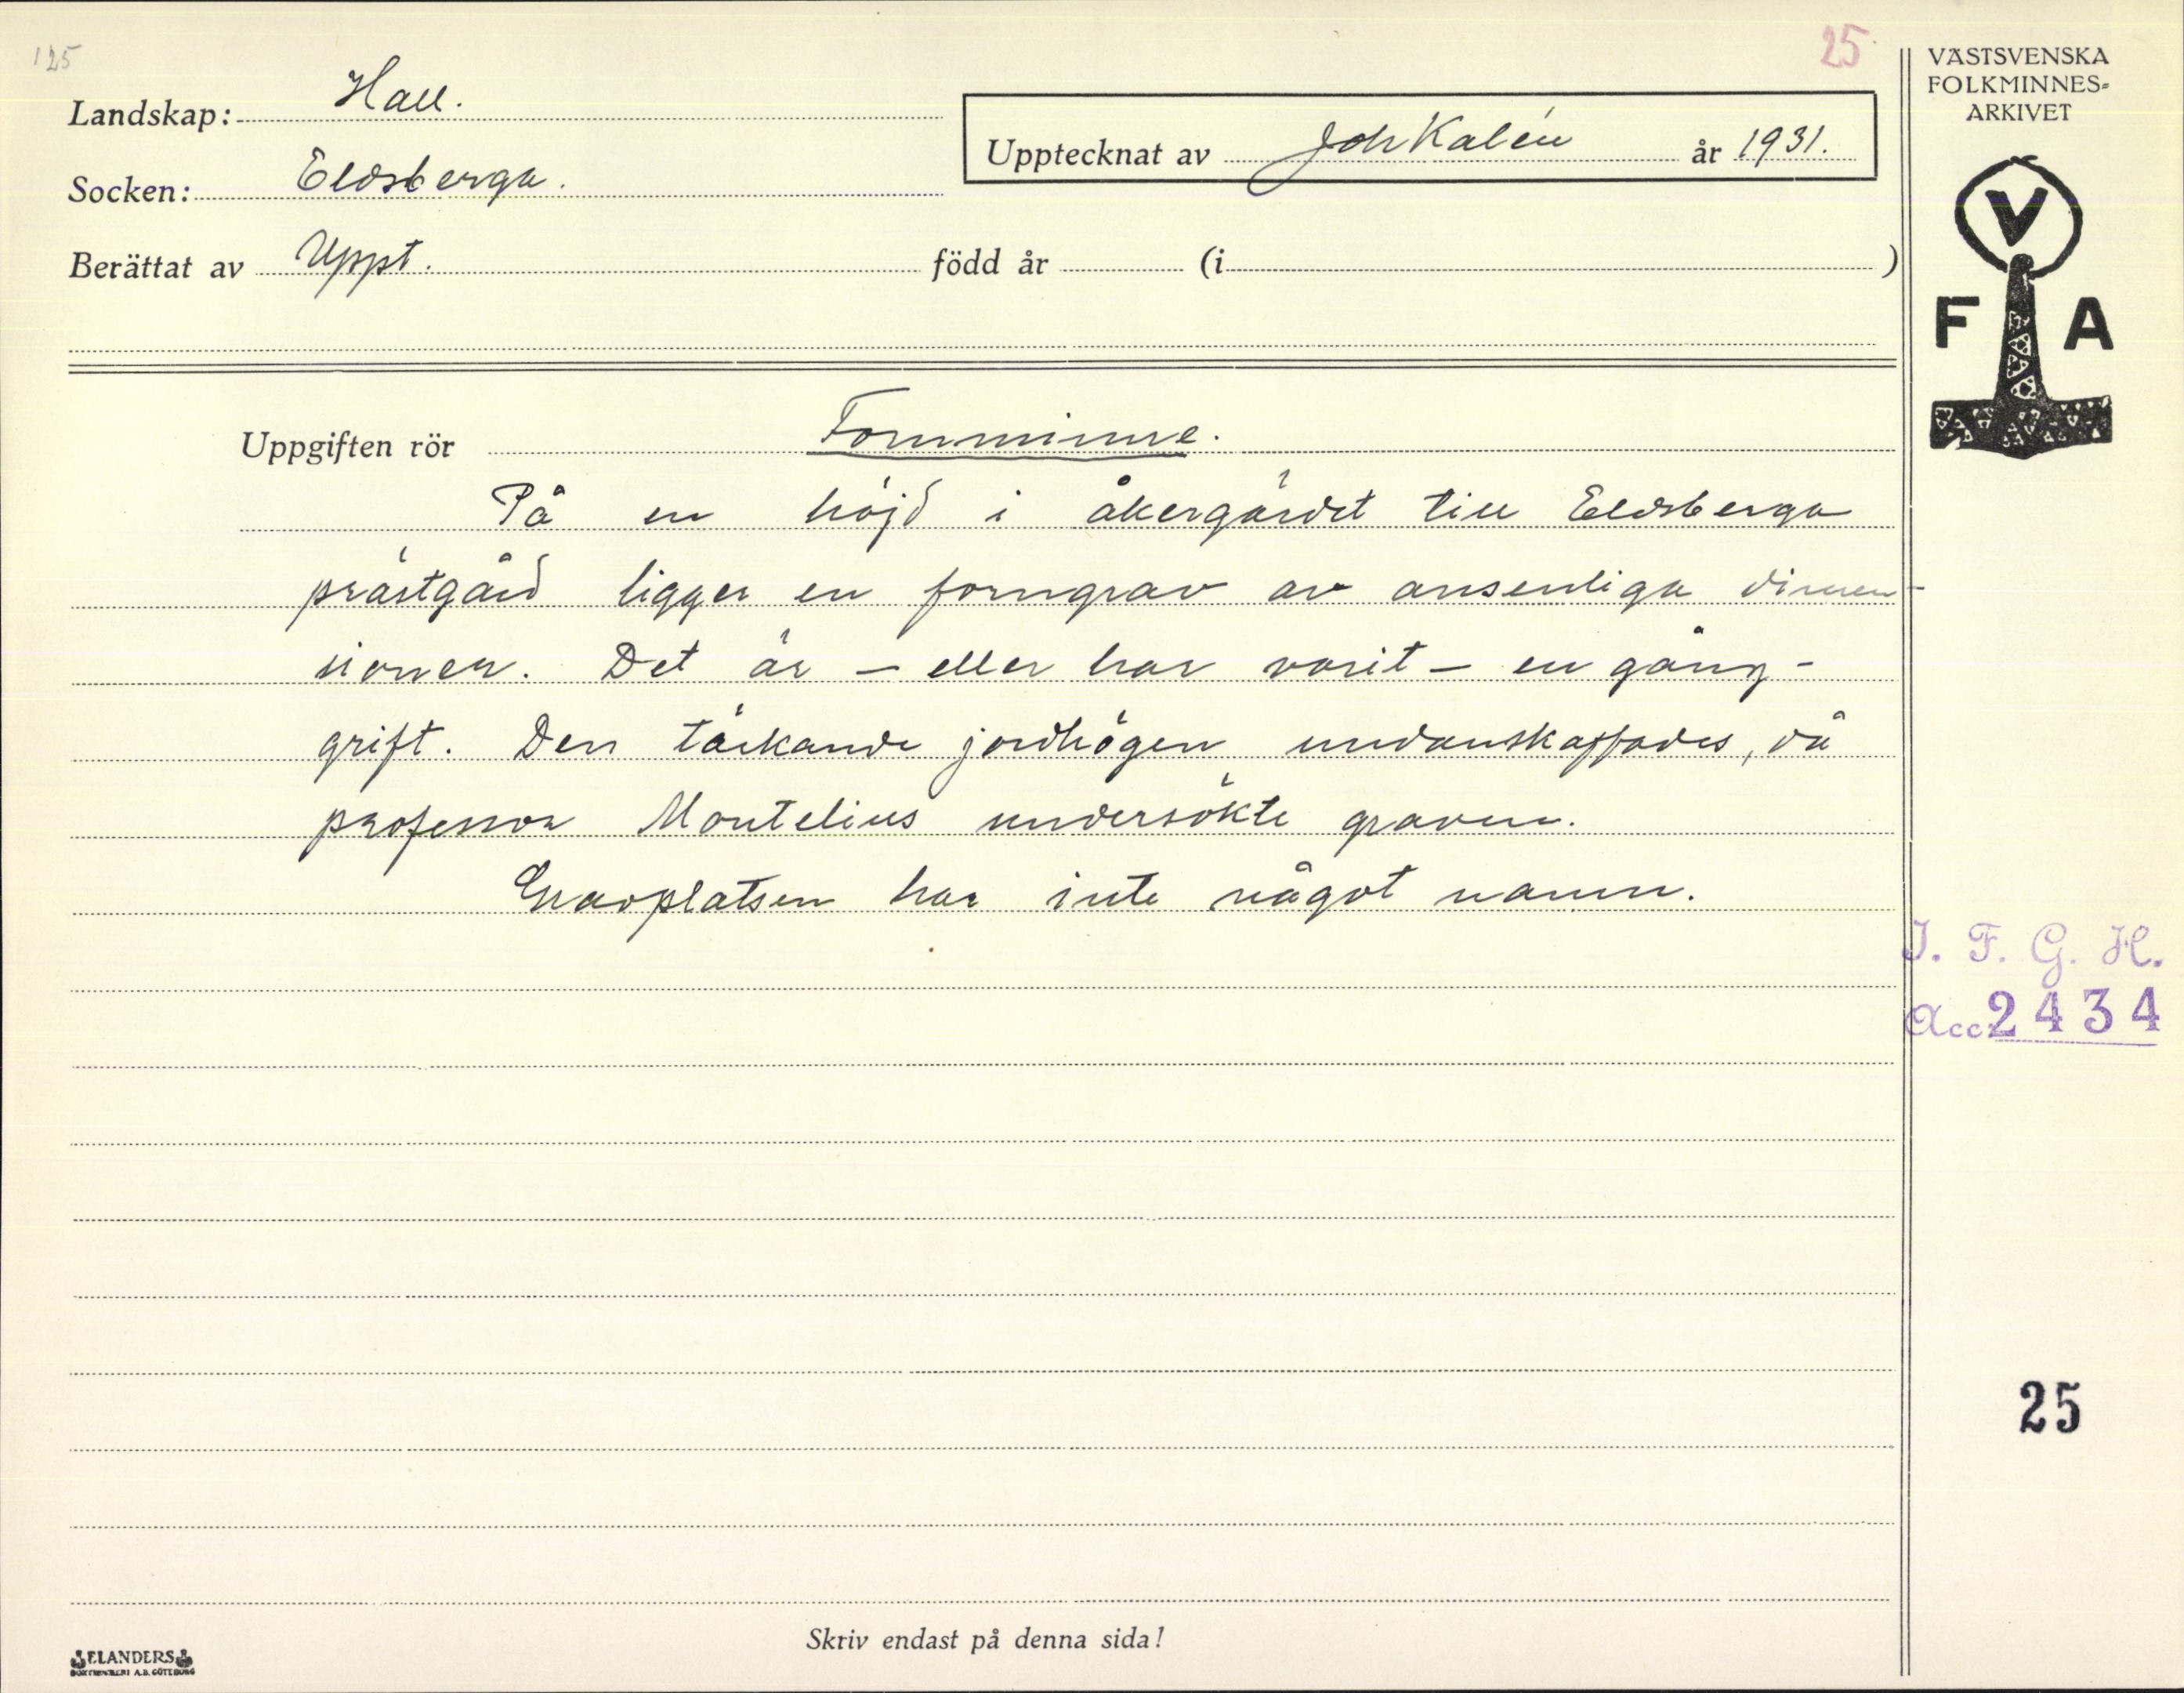 125
25
Landskap: Hall.
Socken: Eldsberga.
Berättat av Uppt. född år (i )
Upptecknat av Joh Kalén år 1931.
VÄSTSVENSKA
FOLKMINNES-
ARKIVET
V
F A
Uppgiften rör Fornminne.
På en höjd i åkergärdet till Eldsberga
prästgård ligger en forngrav av ansenliga dimen-
sioner. Det är – eller har varit – en gång-
grift. Den täckande jordhögen undanskaffades, då
professor Montelius undersökte graven.
Gravplatsen har inte något namn.
I. F. G. H.
Acc. 2434
25
Skriv endast på denna sida!
ELANDERS
BOKTRYCKERI A.B. GÖTEBORG